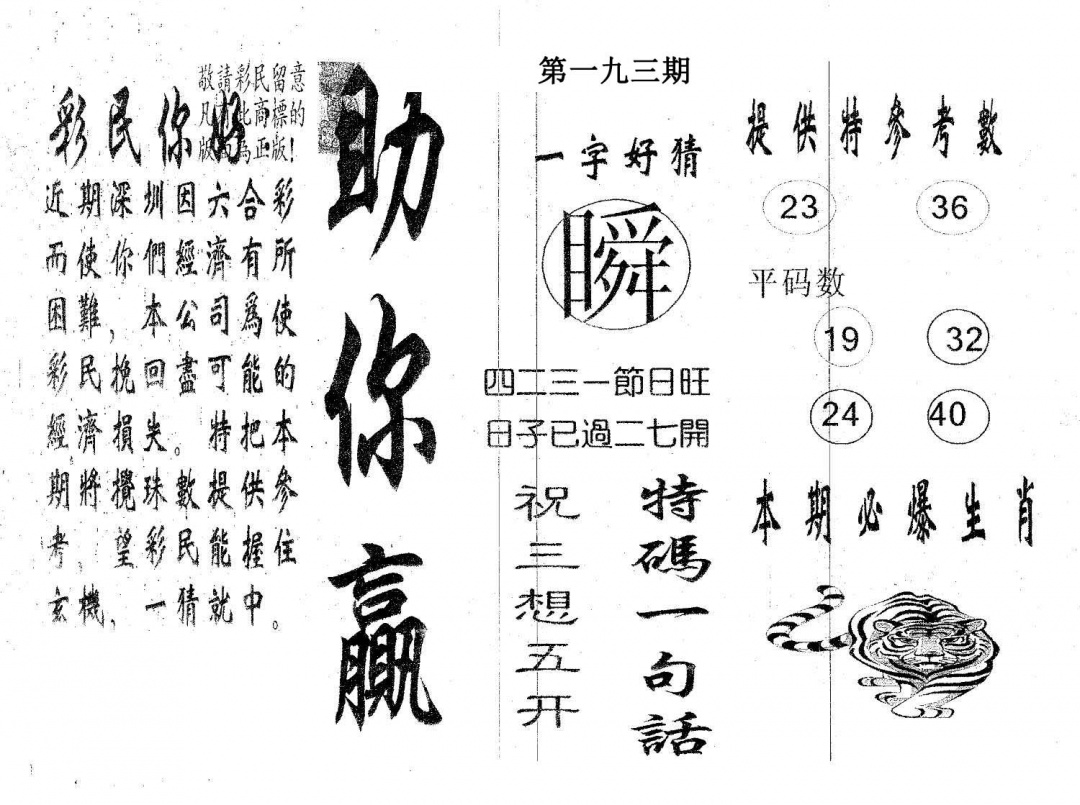 敬請彩民留意
凡此商標的
版為正版!
彩民你好
近期深圳因六合彩
而使你們經濟有所
困難,本公司爲使
彩民挽回盡可能的
經濟損失。特把本
期將攪珠數提供參
考,望彩民能握住
玄機,一猜就中。
助你贏
第一九三期
一字好猜
瞬
四二三一節日旺
日子已過二七開
特碼一句話
祝三想五开
提供特參考數
23 36
平码数
19 32
24 40
本期必爆生肖